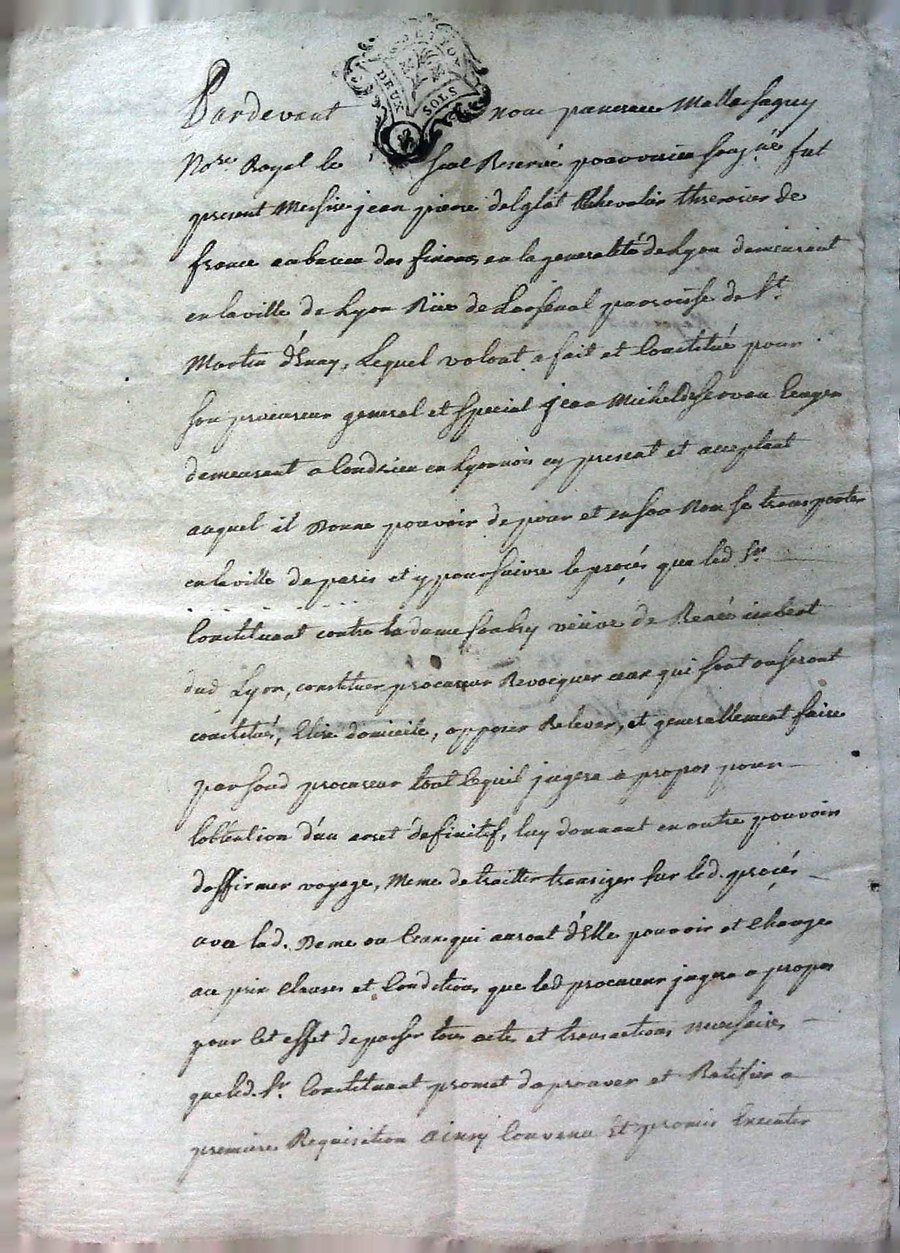 DEUX SOLS
Pardevant nous
No.re Royal le Scel Reservé pardevant soug.né fut
present Messire jean pierre delglat Chevalier thresorier de
france au bureau des finances en la generalité de Lyon demeurant
en la ville de Lyon Rüe de Larsenal parroisse de S.t
Martin d'Enay, Lequel volont. a fait et Constitué pour
son procureur general et special jean Michel
demeurant a Condrieu en Lyonnois cy present et acceptant
auquel il Donne pouvoir de pour et en son Nom se transporter
en la ville de paris et y poursuivre le procés que led S.r
Constituant contre la dame veüve de Renée imbert
dud Lyon, constituer procureur Revocquer ceux qui sont ou seront
constitués, Elire domicile, opposer Relever, et generallement faire
par sond procureur tout ce quil jugera a propos pour
lobtention d'un aret définitif, luy donnant en outre pouvoir
daffirmer voyage, Meme de traitter transiger sur led. procés
avec lad. Dame ou Ceux qui auront d'Elle pouvoir et Charge
aux prix Clauses et Conditions que led procureur jugera a propos
pour Cet effet de passer tous actes et transactions necessaires
que led. S.r Constituant promet daprouver et Ratifier a
premiere Requisition Ainsy Convenu Et promis Executer